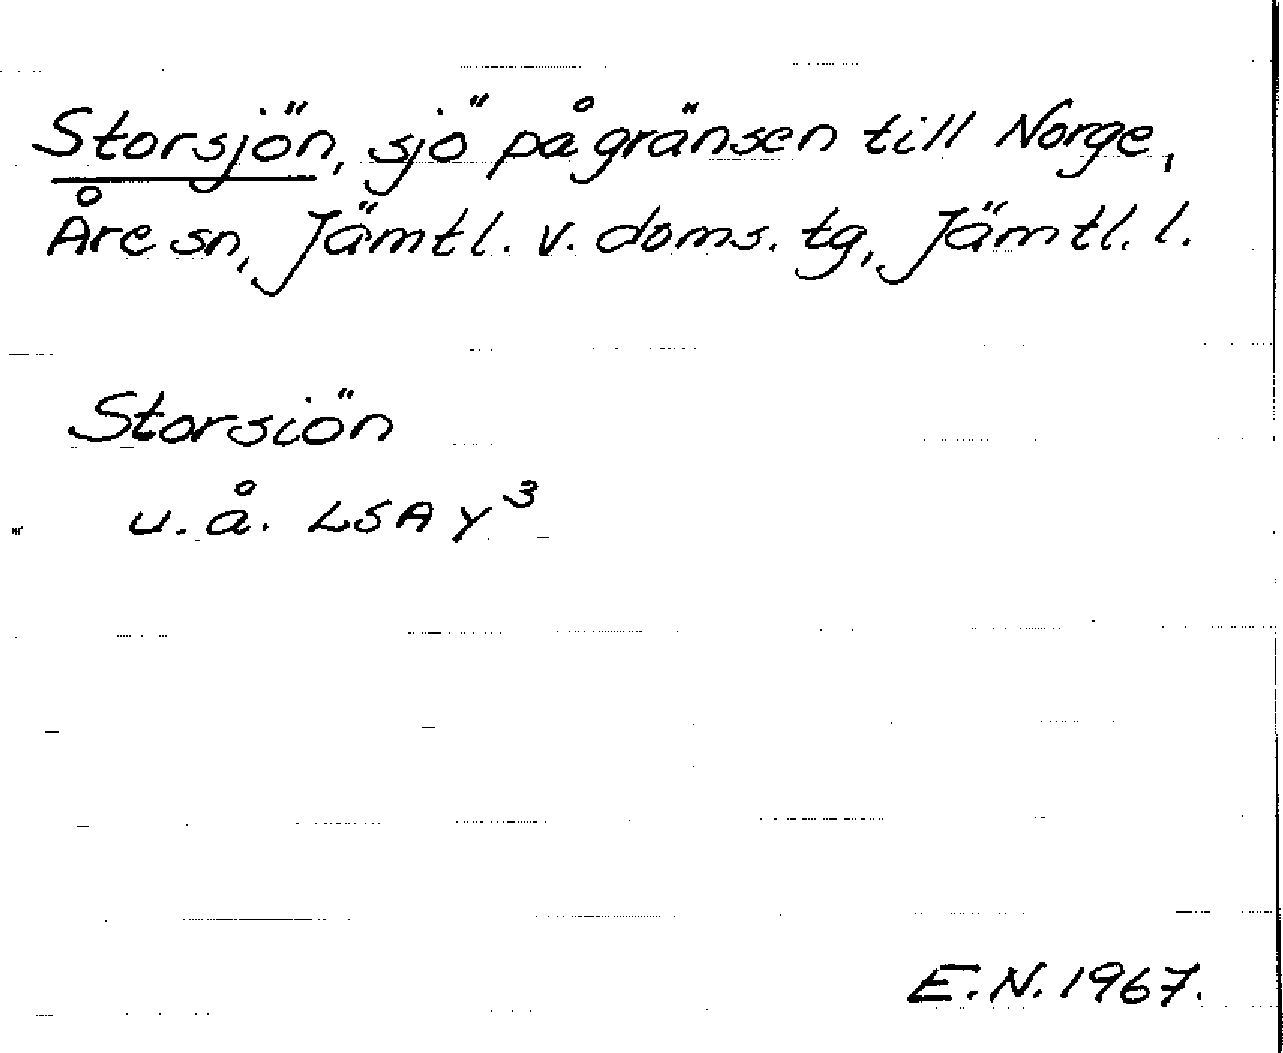 Storsjön, sjö på gränsen till Norge,
Åre sn, Jämtl. v. doms. tg, Jämtl. l.
Storsiön
u. å. LSA Y³
E.N. 1967.